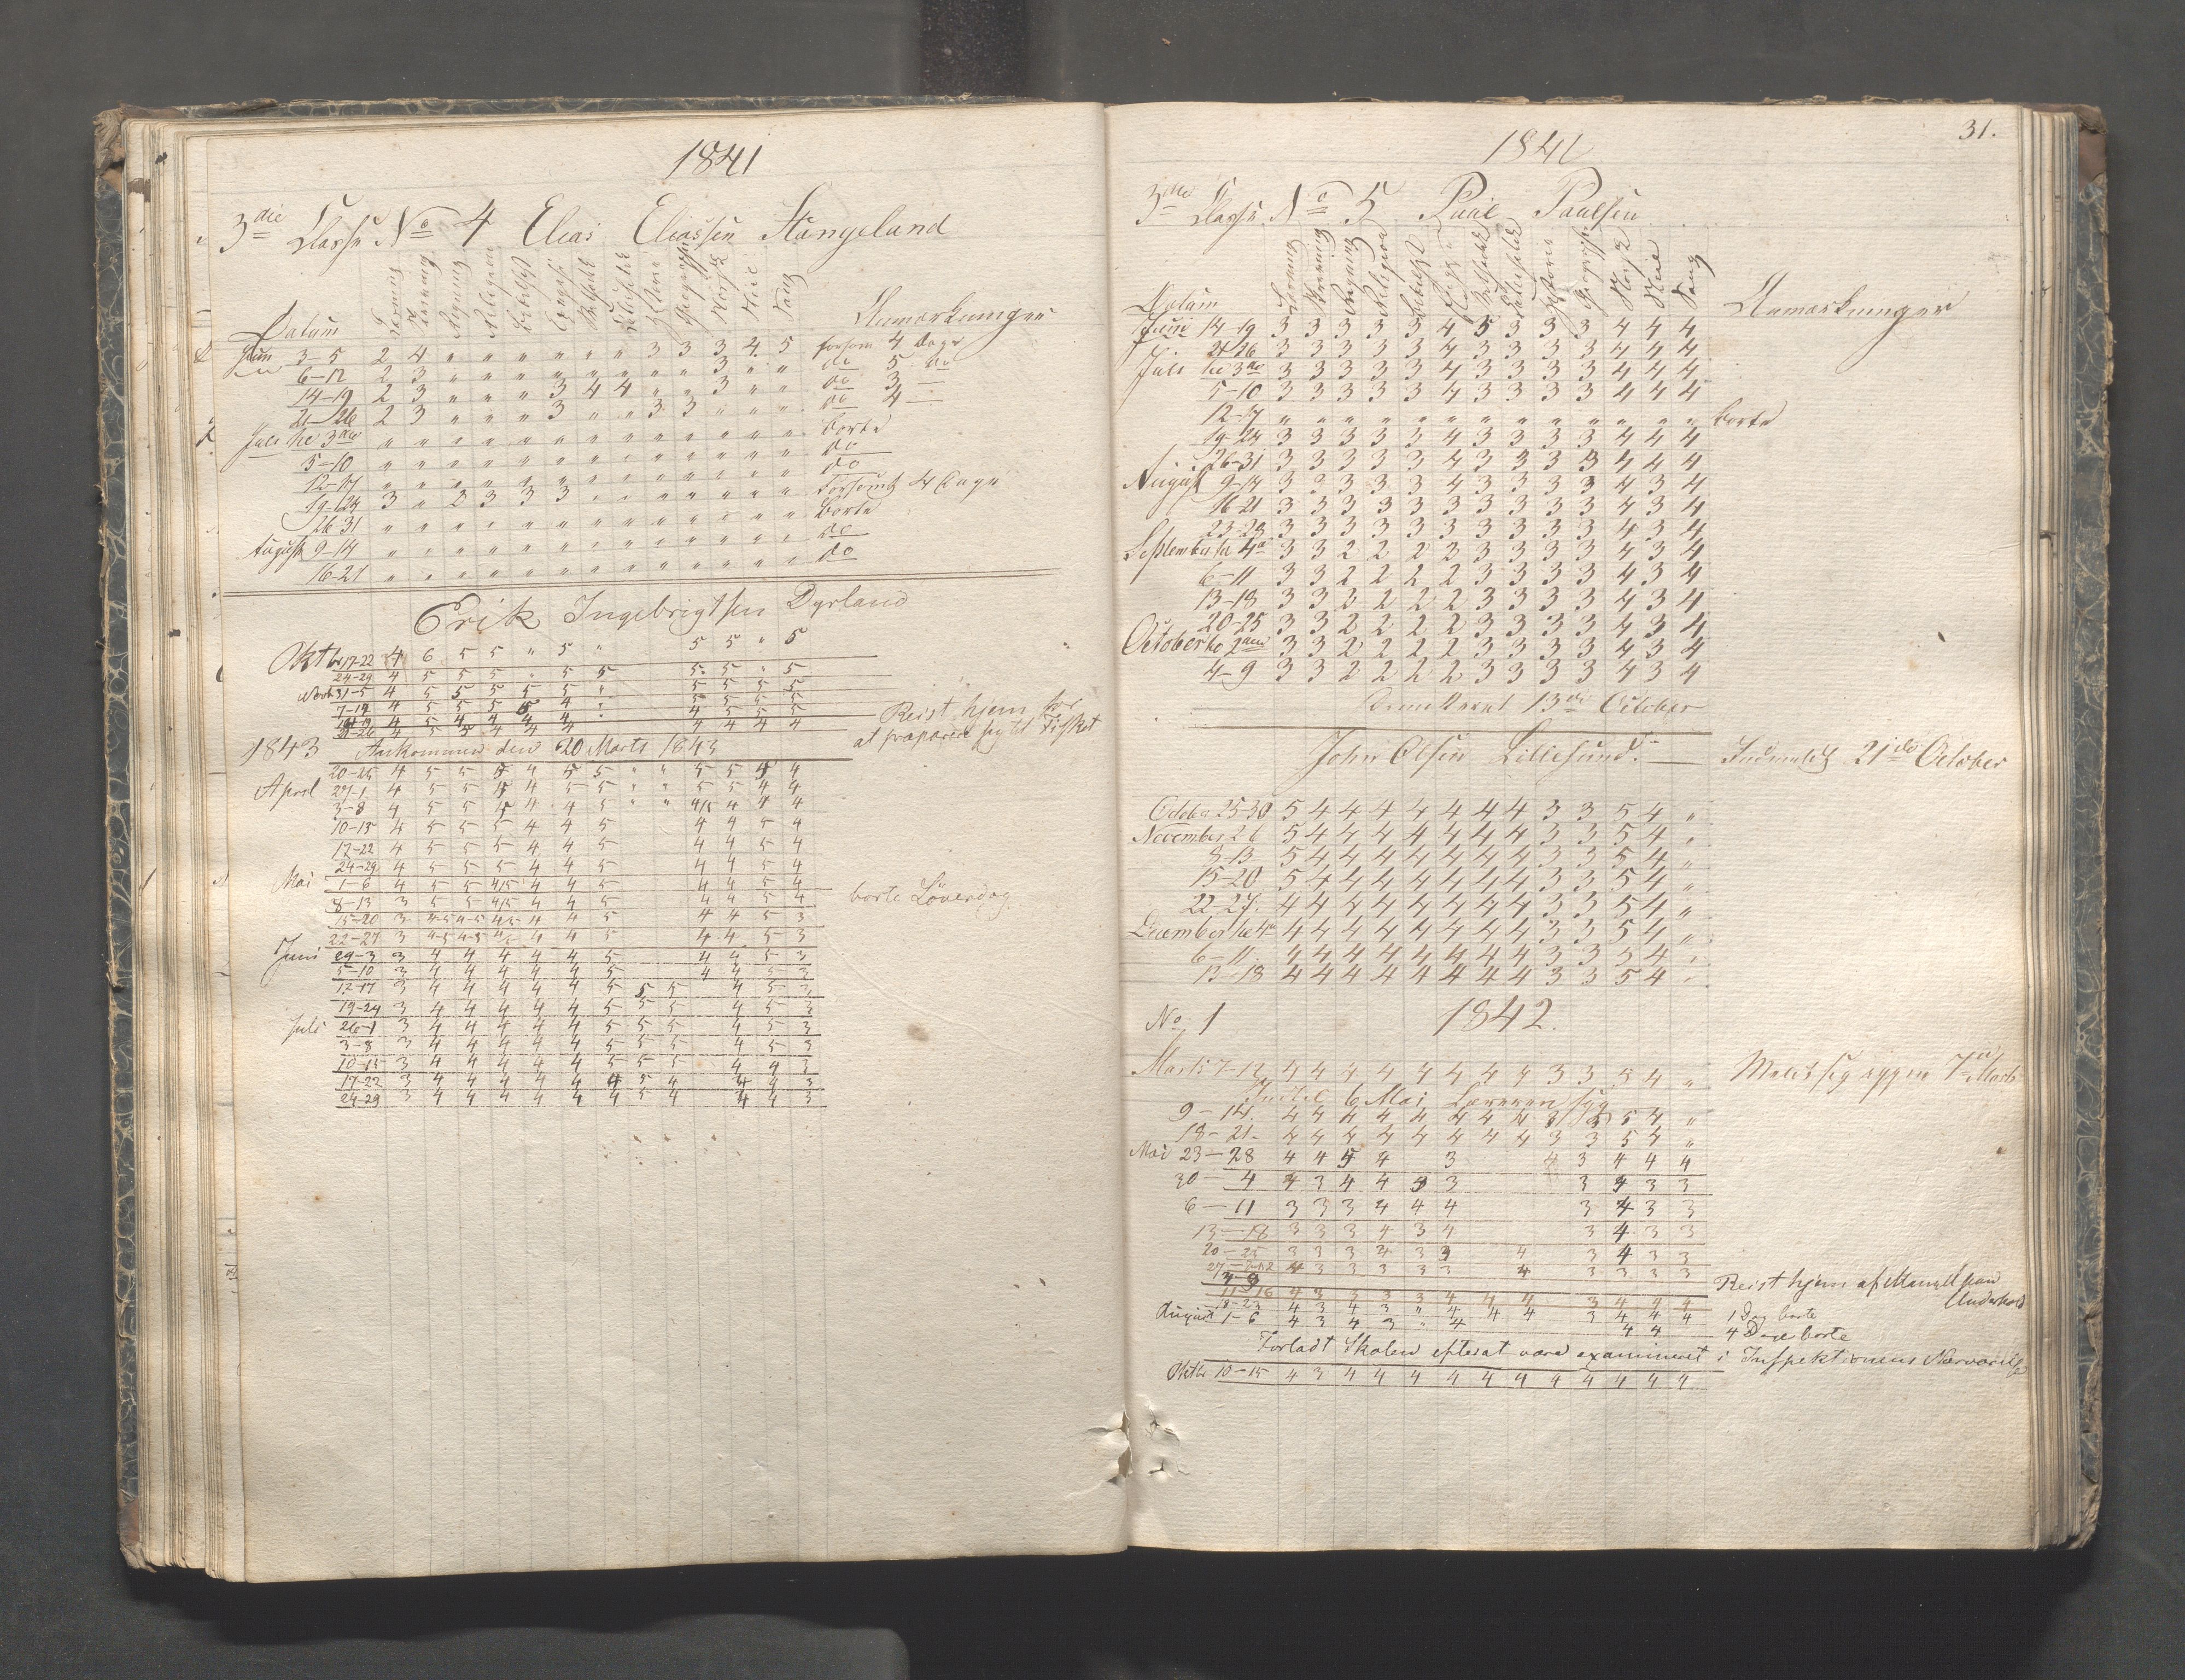 1841
3die Classe No 4 Elias Eliassen Stangeland
Datum Læsning Skrivning Regning Religion Historie Geographi Norsk Flid Sang Anmærkninger
Juni 3-5 2 4 " " " " " " " 3 3 3 4 5 forsømt 4 Dage
6-12 2 3 " " " " " " " " " 3 " " do 5 do
14-19 2 3 " " " 3 4 4 " " 3 " " do 3 —
21-26 2 3 " " " 3 " " 3 3 " " " do 4 —
Juli til 3die " " " " " " " " " " " " " borte
5-10 " " " " " " " " " " " " " do
12-17 " " " " " " " " " " " " " do
19-24 3 " 2 3 3 3 " " " " " " " Forsømt 4 Dage
26-31 " " " " " " " " " " " " " borte
August 9-14 " " " " " " " " " " " " " do
16-21 " " " " " " " " " " " " " do
Erik Ingebrigtsen Dyrland
Oktbr 17-22 4 6 5 5 " 5 " 5 5 " 5
24-29 4 5 5 5 " 5 5 5 5 " 5
Novb 31-5 4 5 5 5 5 5 " 5 5 5 5
7-12 4 5 5 5 5 4 " 5 5 5 5
4 5 4 4 4 4 4 5 5 5
21-26 4 5 5 4 4 4 4 4 4 4
Reist hjem for
at præparere sig til Fisket
1843 Ankommen den 20 Marts 1843
20-25 4 5 5 5 4 5 5 " " 5 5 5 4
April 27-1 4 5 5 5 4 5 5 " " 5 5 4 4
3-8 4 5 5 5 4 4 5 " " 4/5 4 4 4
10-15 4 5 5 5 4 4 5 4 4 5 4
17-22 4 5 5 5 4 4 5 4 4 5 4
24-29 4 5 5 5 4 4 5 4 4 5 4
Mai 1-6 4 5 5 4/5 4 4 5 4 4 5 4
8-13 3 5 5 4/5 4 4 5 4 4 5 4 borte Löverdag
15-20 3 4-5 4-5 4/5 4 4 5 4 4 5 3
22-27 3 4-5 4-5 4/5 4 4 5 4 4 5 3
Juni 29-3 3 4 4 4 4 4 5 4 4 5 3
5-10 3 4 4 4 4 4 5 4 4 5 3
12-17 3 4 4 4 4 4 5 5 5 4 5 3
19-24 3 4 4 4 4 4 5 5 5 4 5 3
Juli 26-1 3 4 4 4 4 4 5 5 5 4 5 3
3-8 3 4 4 4 4 4 5 5 5 4 5 3
10-15 3 4 4 4 4 4 5 5 5 4 4 3
17-22 3 4 4 4 4 4 4 5 4 4 4 3
24-29 3 4 4 4 4 4 4 5 4 4 4 3
31.
1841
3die Classe No 5 Paul Paulsen
Datum Læsning Skrivning Regning Religion Historie Geographi Norsk Flid Sang Anmærkninger
Juni 14-19 3 3 3 3 3 4 5 3 3 3 4 4 4
21-26 3 3 3 3 3 4 3 3 3 3 4 4 4
Juli til 3die 3 3 3 3 3 4 3 3 3 3 4 4 4
5-10 3 3 3 3 3 4 3 3 3 3 4 4 4
12-17 " " " " " " " " " " " " " borte
19-24 3 3 3 3 3 4 3 3 3 3 4 4 4
26-31 3 3 3 3 3 4 3 3 3 3 4 4 4
August 9-14 3 3 3 3 3 4 3 3 3 3 4 3 4
16-21 3 3 3 3 3 3 3 3 3 3 4 3 4
23-28 3 3 3 3 3 3 3 3 3 3 4 3 4
September til 4de 3 3 2 2 2 3 3 3 3 3 4 3 4
6-11 3 3 2 2 2 2 3 3 3 3 4 3 4
13-18 3 3 2 2 2 2 3 3 3 3 4 3 4
20-25 3 3 2 2 2 2 3 3 3 3 4 3 4
October til 2den 3 3 2 2 2 2 3 3 3 3 4 3 4
4-9 3 3 2 2 2 2 3 3 3 3 4 3 4
13de October
John Olsen Lillesund. — Indmeldt 21de October
October 25-30 5 4 4 4 4 4 4 4 3 3 5 4 "
November 2 6 5 4 4 4 4 4 4 4 3 3 5 4 "
8-13 5 4 4 4 4 4 4 4 3 3 5 4 "
15-20 5 4 4 4 4 4 4 4 3 3 5 4 "
22-27 4 4 4 4 4 4 4 4 3 3 5 4 "
December til 4de 4 4 4 4 4 4 4 4 3 3 5 4 "
6-11 4 4 4 4 4 4 4 4 3 3 5 4 "
13-18 4 4 4 4 4 4 4 4 3 3 5 4 "
No 1 1842.
Marts 7-12 4 4 4 4 4 4 4 4 3 3 5 4 " Meldt sig igjen 7de Marts
Indtil 6 Mai Læreren syg
9-14 4 4 4 4 4 4 4 4 3 3 5 4 "
18-21 4 4 4 4 4 4 4 4 3 3 5 4 "
Mai 23-28 4 4 5 4 3 4 3 4 4 4
30-4 4 3 4 4 3 3 3 4 3 3
6-11 3 3 3 4 4 4 3 4 3 3
13-18 3 3 3 4 3 4 3 4 3 3
20-25 3 3 3 4 3 3 4 3 4 3 3
27-2 4 3 3 3 3 3 4 3 3 3 3
4-9 Reist hjem af Mangel paa
Underhold
11-16 4 3 3 3 3 4 4 4 3 4 4 4
18-23 4 3 4 3 " 4 4 4 3 4 4 4 1 Dag borte
August 1-6 4 3 4 3 " 4 4 4 4 Dage borte
Forladt Skolen efterat være examineret i Inspektionens Nærværelse
Oktbr 10-15 4 3 4 4 4 4 4 4 4 4 4 4 4